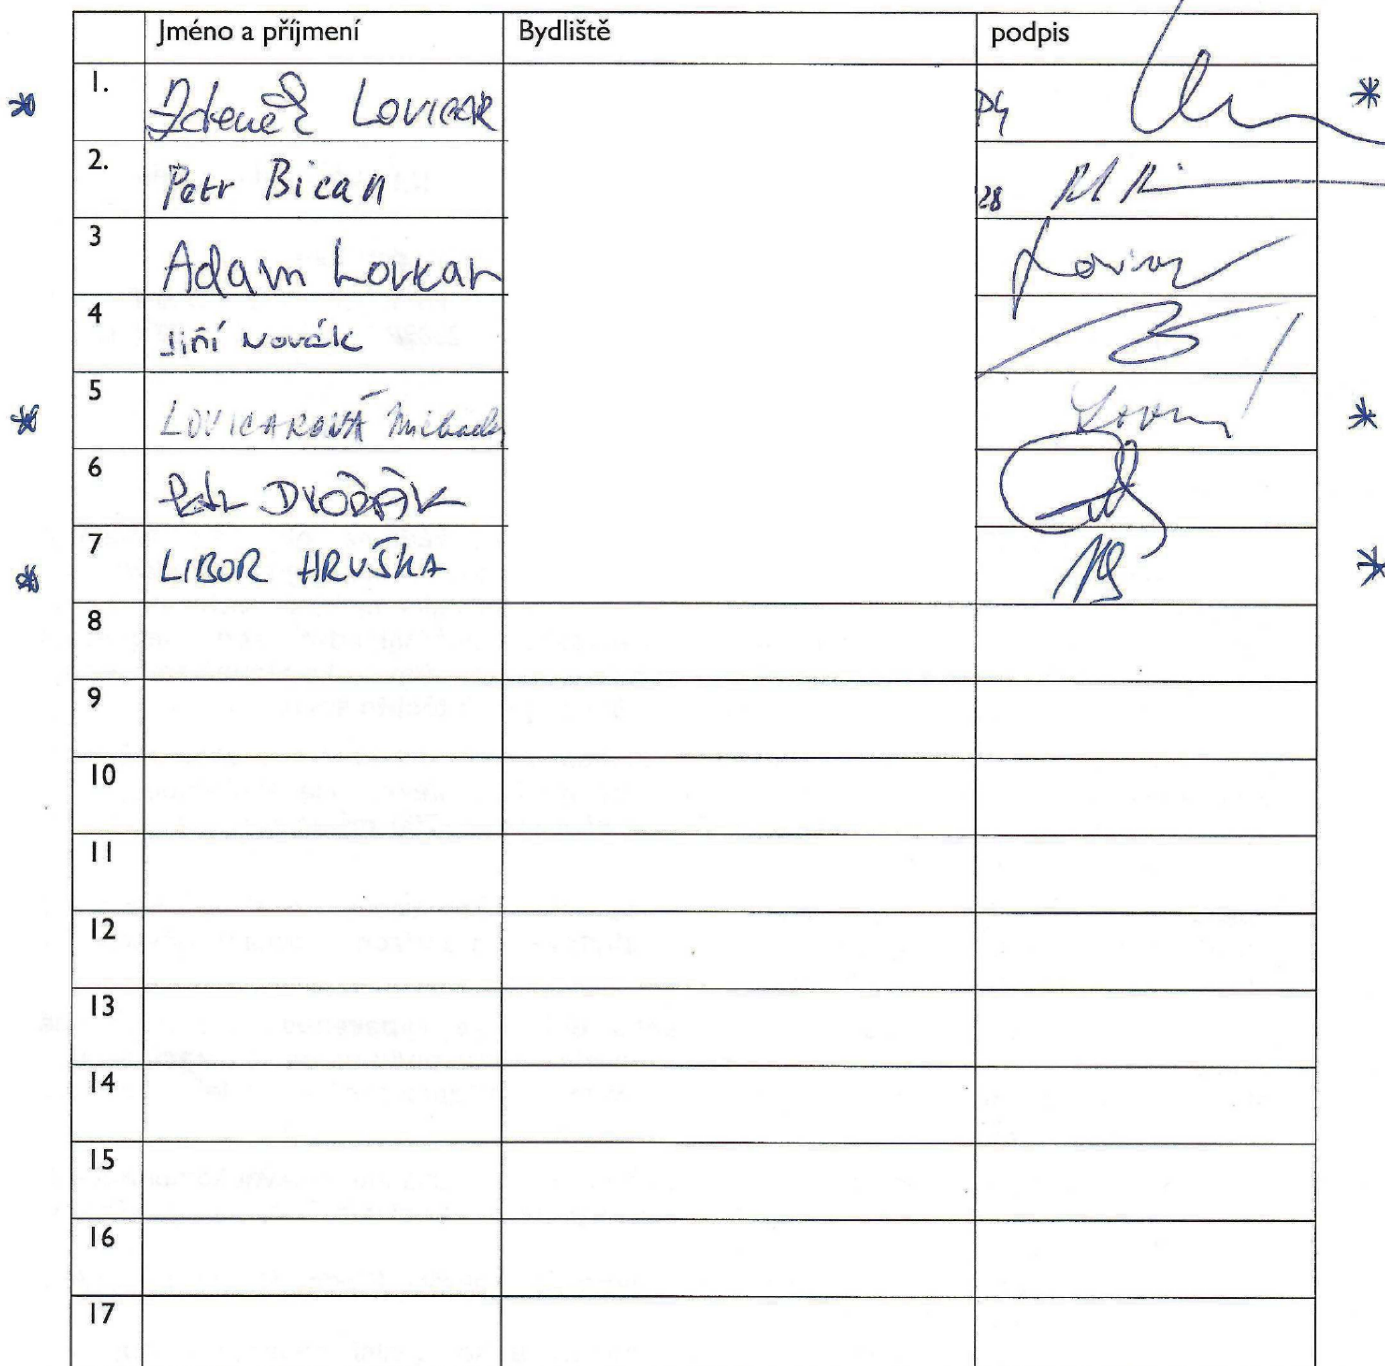 Jméno a příjmení Bydliště podpis
1. Zdeněk LOVICAR
2. Petr Bican 28
3 Adam Lovicar
4 Jiří Novák
5 LOVICAROVÁ Michaela
6 Petr DVOŘÁK
7 LIBOR HRUŠKA
8
9
10
11
12
13
14
15
16
17